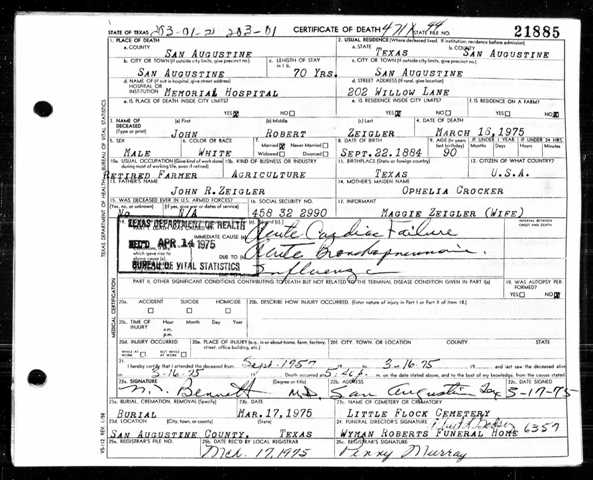 STATE OF TEXAS 203-01-21 203-01 CERTIFICATE OF DEATH STATE FILE NO. 21885
1. PLACE OF DEATH 2. USUAL RESIDENCE (Where deceased lived. If institution: residence before admission)
a. COUNTY a. STATE b. COUNTY
SAN AUGUSTINE TEXAS SAN AUGUSTINE
b. CITY OR TOWN (If outside city limits, give precinct no.) c. LENGTH OF STAY c. CITY OR TOWN (If outside city limits, give precinct no.)
SAN AUGUSTINE 70 YRS. SAN AUGUSTINE
d. NAME OF (If not in hospital, give street address) d. STREET ADDRESS (If rural, give location)
HOSPITAL OR
INSTITUTION MEMORIAL HOSPITAL 202 WILLOW LANE
e. IS PLACE OF DEATH INSIDE CITY LIMITS? e. IS RESIDENCE INSIDE CITY LIMITS? f. IS RESIDENCE ON A FARM?
YES NO YES NO YES NO
3. NAME OF DECEASED (a) First (b) Middle (c) Last 4. DATE OF DEATH
(Type or print) JOHN ROBERT ZEIGLER MARCH 16, 1975
5. SEX 6. COLOR OR RACE 7. Married Never Married 8. DATE OF BIRTH 9. AGE (In years IF UNDER 1 YEAR IF UNDER 24 HRS.
MALE WHITE Widowed Divorced SEPT.22,1884 90 Months Days Hours Min.
10a. USUAL OCCUPATION (Give kind of work done 10b. KIND OF BUSINESS OR INDUSTRY 11. BIRTHPLACE (State or foreign country) 12. CITIZEN OF WHAT COUNTRY?
during most of working life, even if retired)
RETIRED FARMER AGRICULTURE TEXAS U.S.A.
13. FATHER'S NAME 14. MOTHER'S MAIDEN NAME
JOHN R. ZEIGLER OPHELIA CROCKER
15. WAS DECEASED EVER IN U.S. ARMED FORCES? 16. SOCIAL SECURITY NO. 17. INFORMANT
No N/A 458 32 2990 MAGGIE ZEIGLER (WIFE)
TEXAS DEPARTMENT OF HEALTH
REC'D APR 14 1975
BUREAU OF VITAL STATISTICS
IMMEDIATE CAUSE Acute Cardiac Failure
DUE TO Acute Bronchopneumonia
Influenza
INTERVAL BETWEEN ONSET AND DEATH
PART II. OTHER SIGNIFICANT CONDITIONS CONTRIBUTING TO DEATH BUT NOT RELATED TO THE TERMINAL DISEASE CONDITION GIVEN IN PART I(a) 19. WAS AUTOPSY PERFORMED?
YES NO
20a. ACCIDENT SUICIDE HOMICIDE 20b. DESCRIBE HOW INJURY OCCURRED. (Enter nature of injury in Part I or Part II of item 18.)
20c. TIME OF INJURY Hour Month Day Year
a.m.
p.m.
20d. INJURY OCCURRED 20e. PLACE OF INJURY (e.g. in or about home, farm, factory, street, office building, etc.) 20f. CITY, TOWN, OR LOCATION COUNTY STATE
WHILE AT WORK NOT WHILE AT WORK
21. I hereby certify that I attended the deceased from Sept. 1957 to 3-16-75
3-16-75 Death occurred at 5:45 p. m. on the date stated above, and to the best of my knowledge, from the causes stated
22a. SIGNATURE (Degree or title) 22b. ADDRESS 22c. DATE SIGNED
Bennett M.D. San Augustine Tex 3-17-75
23a. BURIAL, CREMATION, REMOVAL (Specify) 23b. DATE 23c. NAME OF CEMETERY OR CREMATORY
BURIAL MAR.17,1975 LITTLE FLOCK CEMETERY
23d. LOCATION (City, town, or county) (State) 24. FUNERAL DIRECTOR'S SIGNATURE 6357
SAN AUGUSTINE COUNTY, TEXAS WYMAN ROBERTS FUNERAL HOME
25a. REGISTRAR'S FILE NO. 25b. DATE REC'D BY LOCAL REGISTRAR 25c. REGISTRAR'S SIGNATURE
Mch. 17, 1975 Penny Murray
TEXAS DEPARTMENT OF HEALTH, BUREAU OF VITAL STATISTICS
MEDICAL CERTIFICATION
VS-112 REV. 1-58